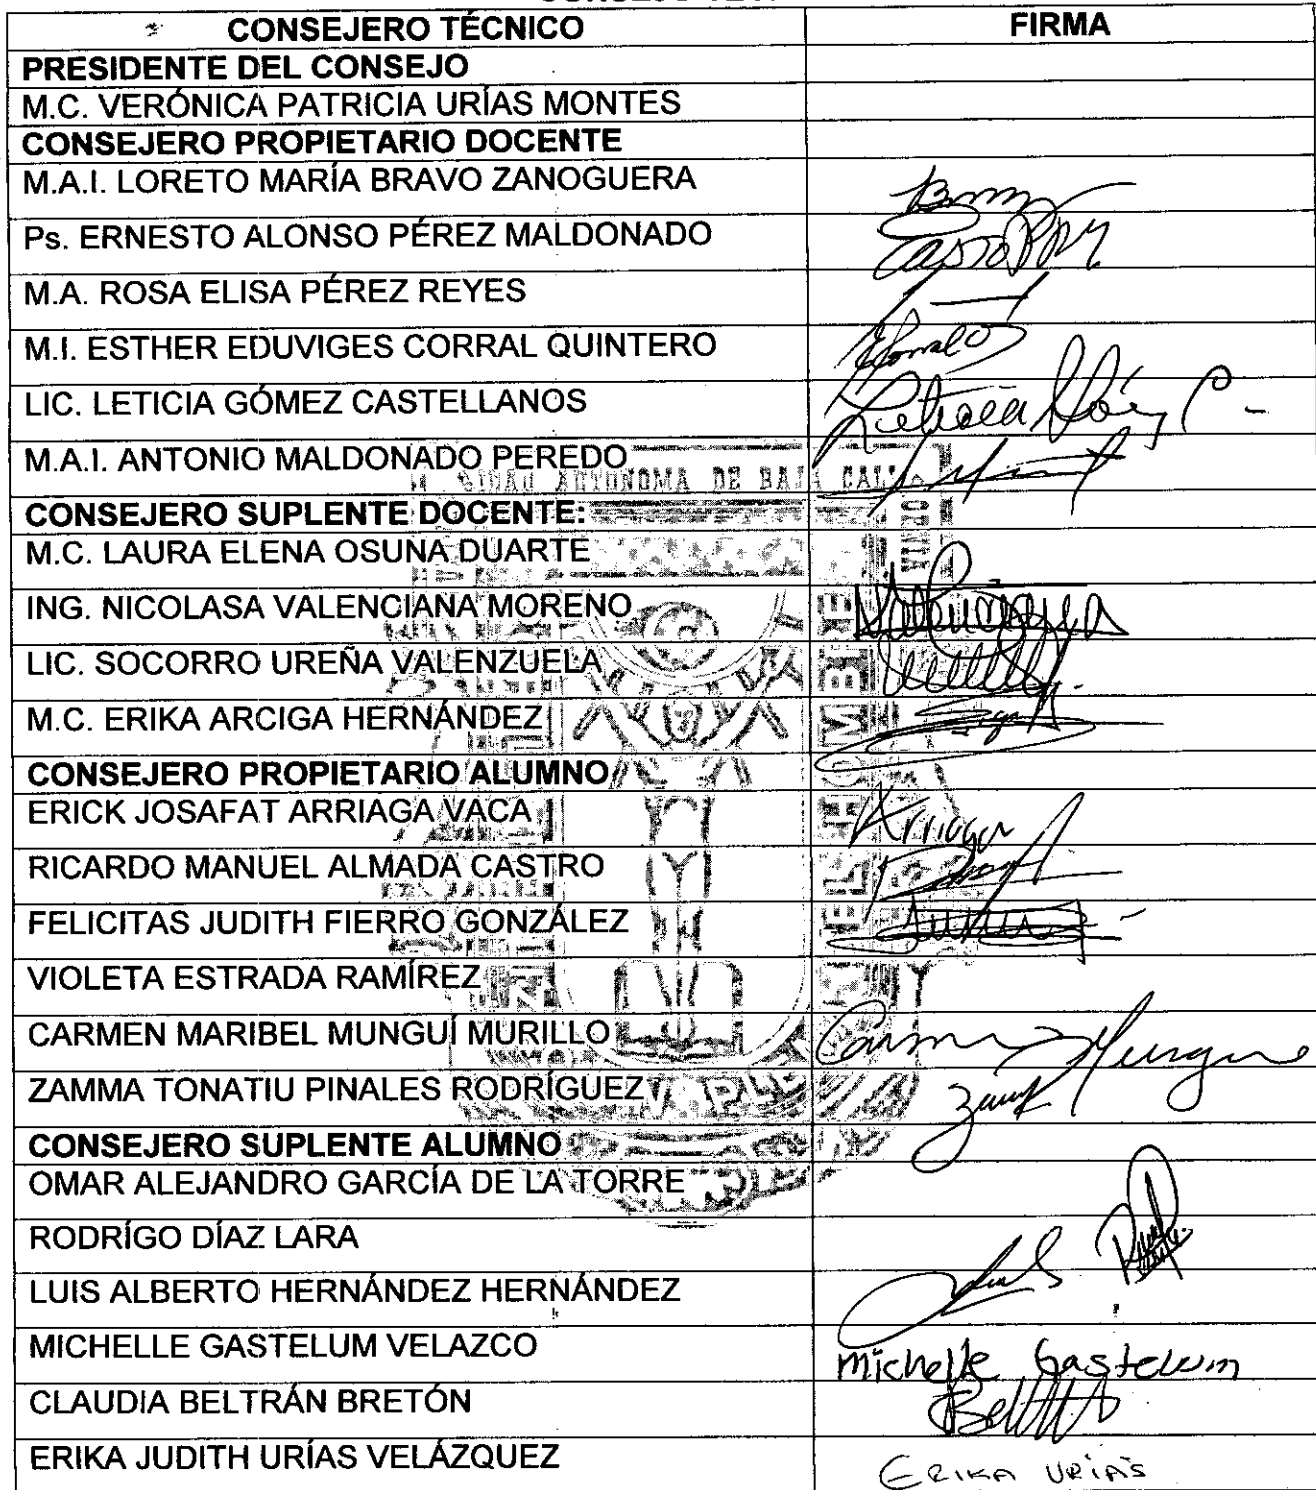 CONSEJERO TÉCNICO FIRMA
PRESIDENTE DEL CONSEJO
M.C. VERÓNICA PATRICIA URÍAS MONTES
CONSEJERO PROPIETARIO DOCENTE
M.A.I. LORETO MARÍA BRAVO ZANOGUERA
Ps. ERNESTO ALONSO PÉREZ MALDONADO
M.A. ROSA ELISA PÉREZ REYES
M.I. ESTHER EDUVIGES CORRAL QUINTERO
LIC. LETICIA GÓMEZ CASTELLANOS
M.A.I. ANTONIO MALDONADO PEREDO
AUTONOMA DE BAJA
CONSEJERO SUPLENTE DOCENTE:
M.C. LAURA ELENA OSUNA DUARTE
ING. NICOLASA VALENCIANA MORENO
LIC. SOCORRO UREÑA VALENZUELA
M.C. ERIKA ARCIGA HERNÁNDEZ
CONSEJERO PROPIETARIO ALUMNO
ERICK JOSAFAT ARRIAGA VACA
RICARDO MANUEL ALMADA CASTRO
FELICITAS JUDITH FIERRO GONZÁLEZ
VIOLETA ESTRADA RAMÍREZ
CARMEN MARIBEL MUNGUÍ MURILLO
ZAMMA TONATIU PINALES RODRÍGUEZ
CONSEJERO SUPLENTE ALUMNO
OMAR ALEJANDRO GARCÍA DE LA TORRE
RODRÍGO DÍAZ LARA
LUIS ALBERTO HERNÁNDEZ HERNÁNDEZ
MICHELLE GASTELUM VELAZCO Michelle Gastelum
CLAUDIA BELTRÁN BRETÓN
ERIKA JUDITH URÍAS VELÁZQUEZ ERIKA URIAS